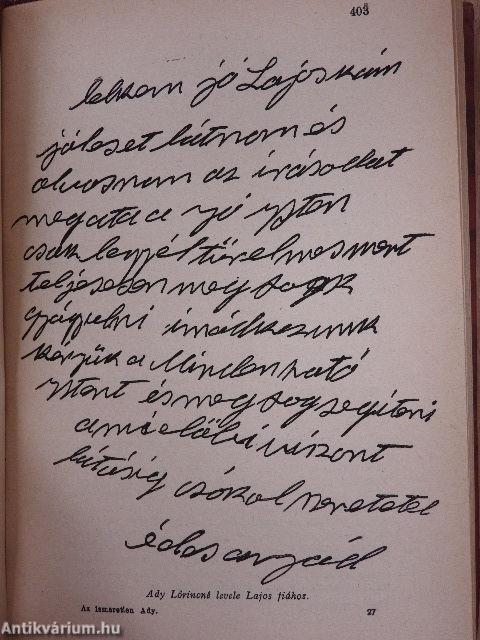 403
lelkem jó Lajoskám
jóleset látnom és
olvasnom az irásodat
megata a jó ysten
csak legyél türelmes mert
teljesesen meg fogk
gyógyulni imádkozunk
kérjük a Mindenható
ystent és meg fog segiteni
a mielőbi viszont
látásig csókol szeretetel
édes anyád
Ady Lőrincné levele Lajos fiához.
Az ismeretlen Ady. 27
Antikvárium.hu